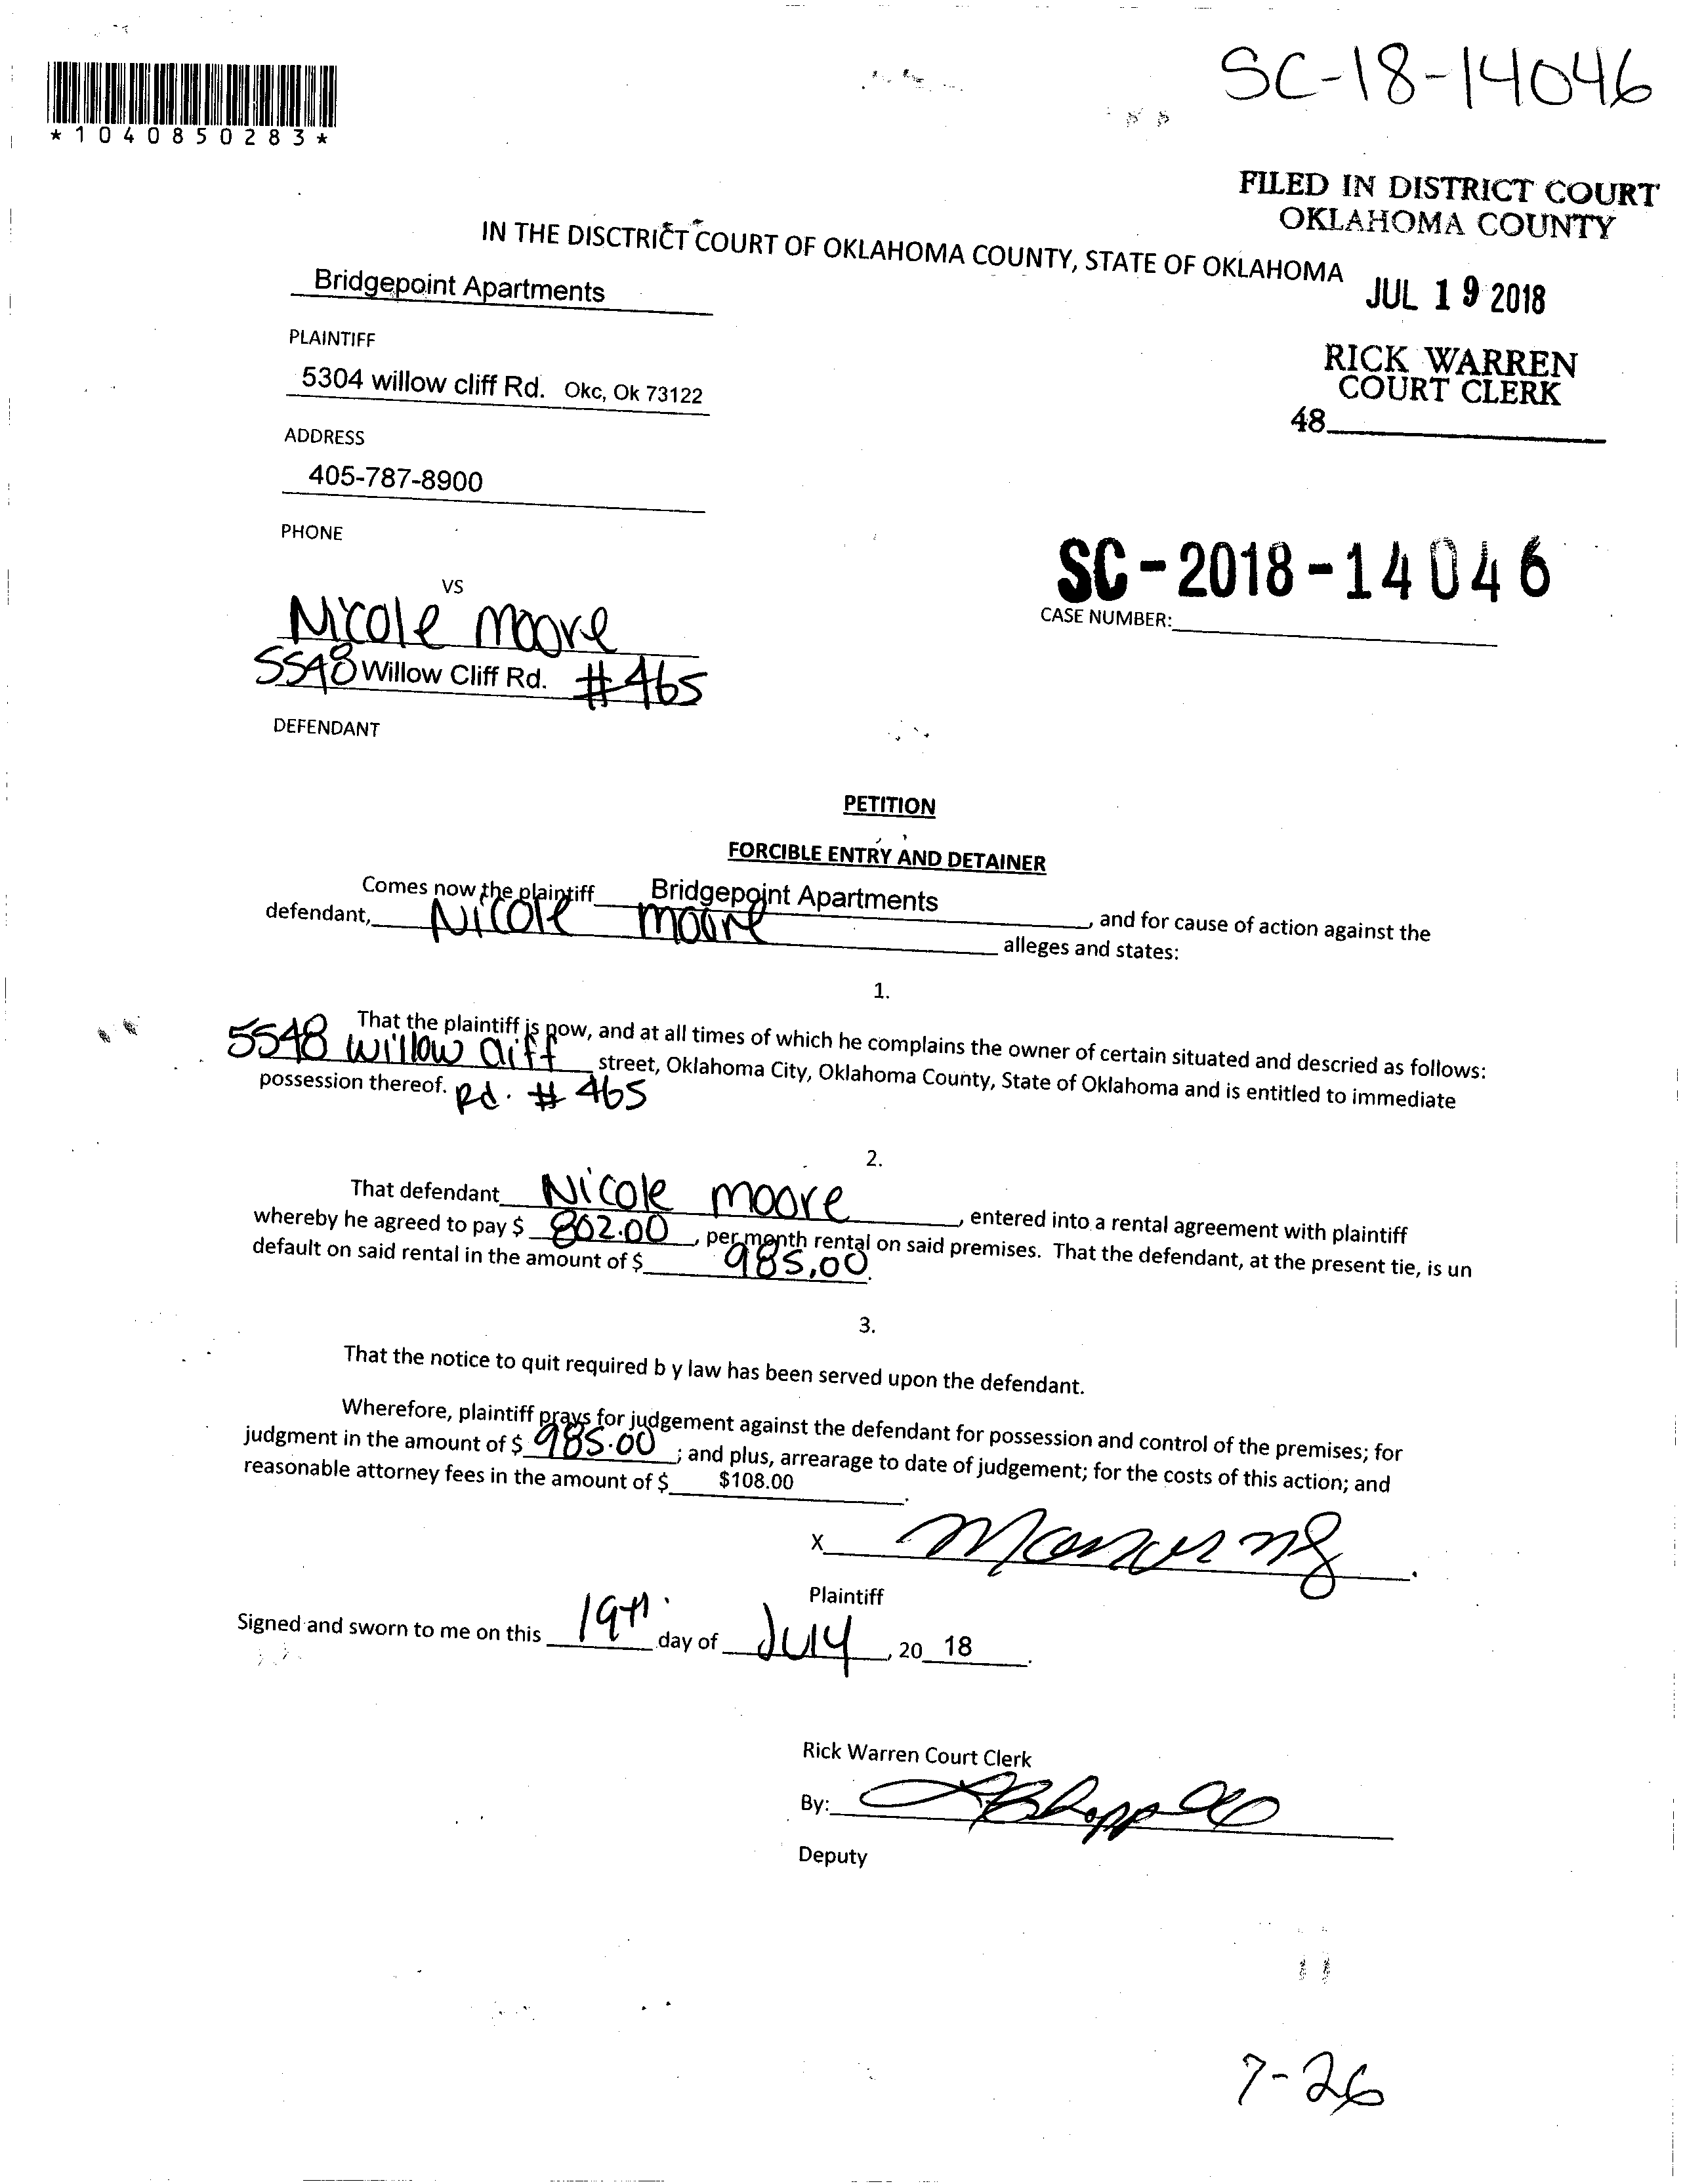 SC-18-14046
*1040850283*
FILED IN DISTRICT COURT
OKLAHOMA COUNTY
IN THE DISCTRICT COURT OF OKLAHOMA COUNTY, STATE OF OKLAHOMA
JUL 19 2018
Bridgepoint Apartments
PLAINTIFF
RICK WARREN
COURT CLERK
5304 willow cliff Rd. Okc, Ok 73122
48
ADDRESS
405-787-8900
PHONE
SC-2018-14046
CASE NUMBER:
VS
Nicole moore
5548 Willow Cliff Rd. #465
DEFENDANT
PETITION
FORCIBLE ENTRY AND DETAINER
Comes now the plaintiff Bridgepoint Apartments, and for cause of action against the
defendant, Nicole moore alleges and states:
1.
That the plaintiff is now, and at all times of which he complains the owner of certain situated and descried as follows:
5548 Willow Cliff street, Oklahoma City, Oklahoma County, State of Oklahoma and is entitled to immediate
possession thereof. Rd. # 465
2.
That defendant Nicole moore, entered into a rental agreement with plaintiff
whereby he agreed to pay $ 802.00, per month rental on said premises. That the defendant, at the present tie, is un
default on said rental in the amount of $ 985.00.
3.
That the notice to quit required b y law has been served upon the defendant.
Wherefore, plaintiff prays for judgement against the defendant for possession and control of the premises; for
judgment in the amount of $ 985.00; and plus, arrearage to date of judgement; for the costs of this action; and
reasonable attorney fees in the amount of $ $108.00.
X
Plaintiff
Signed and sworn to me on this 19th day of July, 20 18.
Rick Warren Court Clerk
By:
Deputy
7-26